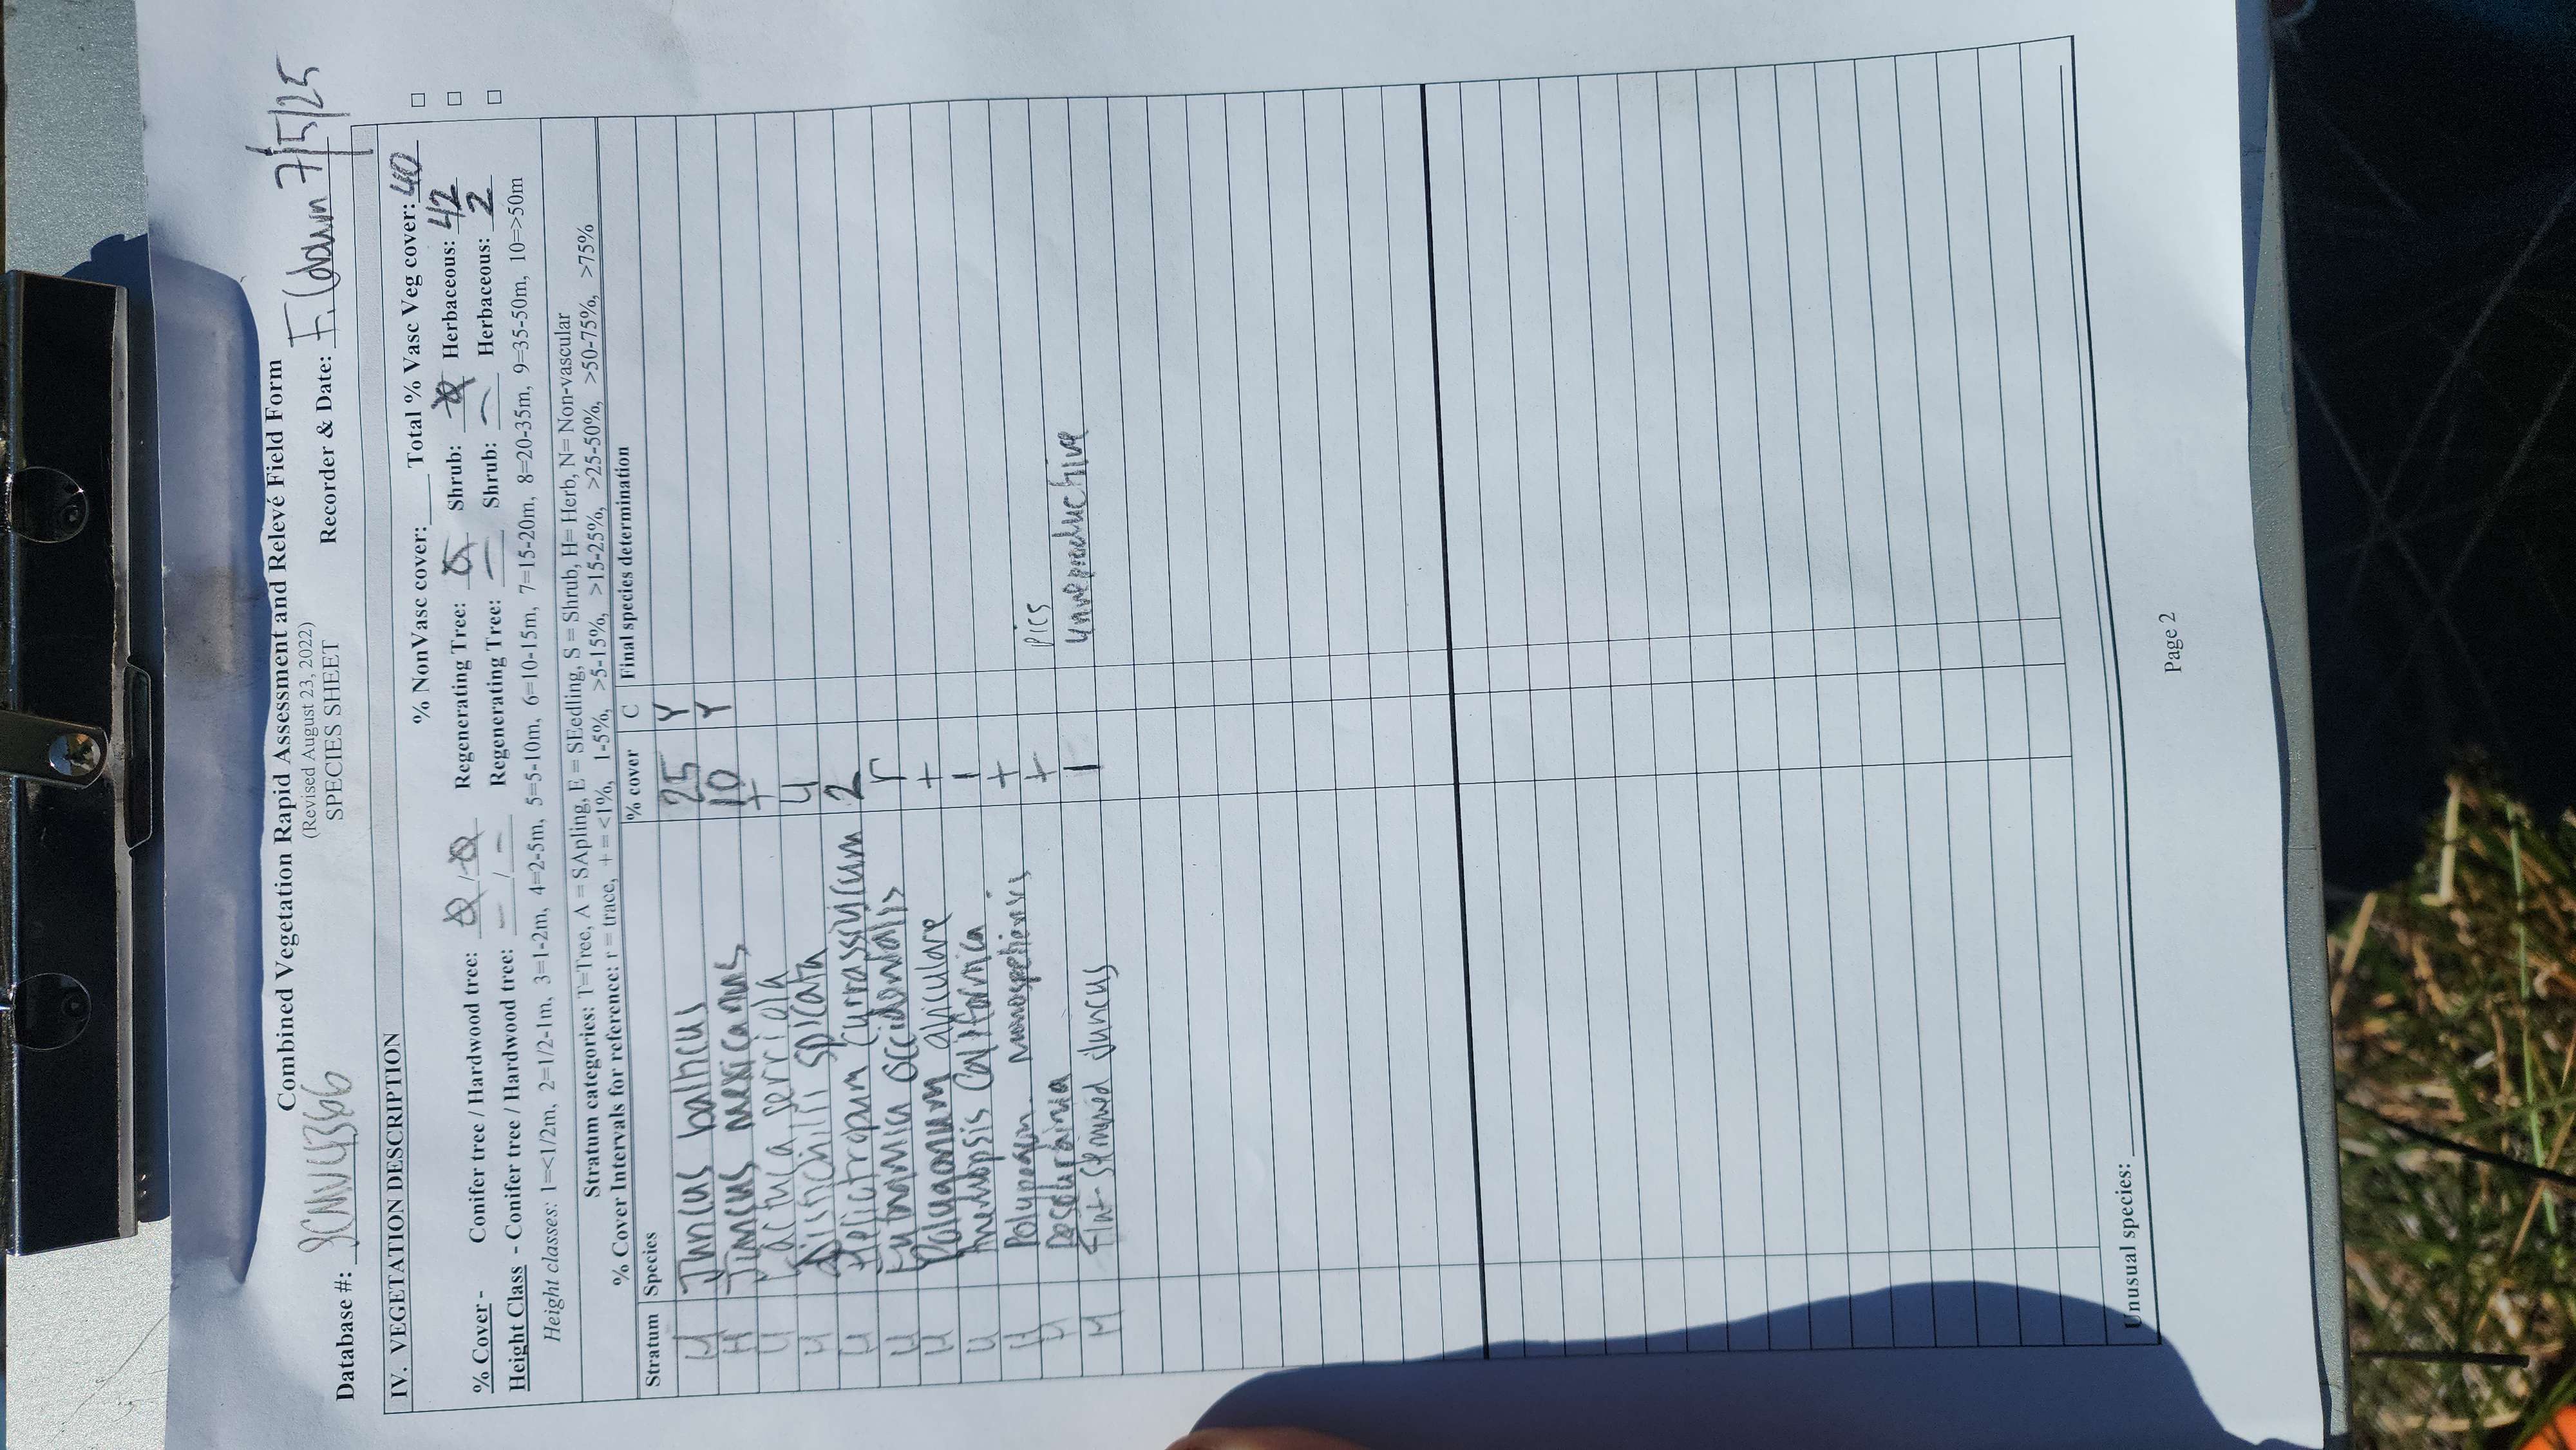 Combined Vegetation Rapid Assessment and Relevé Field Form
(Revised August 23, 2022)
SPECIES SHEET
Database #: SCNV4366 Recorder & Date: 7/5/25
IV. VEGETATION DESCRIPTION
% NonVasc cover: Total % Vasc Veg cover: 40
% Cover - Conifer tree / Hardwood tree: 0 / 0 Regenerating Tree: 0 Shrub: 0 Herbaceous: 42
Height Class - Conifer tree / Hardwood tree: – / – Regenerating Tree: – Shrub: – Herbaceous: 2
Height classes: 1=<1/2m, 2=1/2-1m, 3=1-2m, 4=2-5m, 5=5-10m, 6=10-15m, 7=15-20m, 8=20-35m, 9=35-50m, 10=>50m
Stratum categories: T=Tree, A = SApling, E = SEedling, S = Shrub, H= Herb, N= Non-vascular
% Cover Intervals for reference: r = trace, + = <1%, 1-5%, >5-15%, >15-25%, >25-50%, >50-75%, >75%
Stratum Species % cover C Final species determination
H Juncus balticus 25 Y
H Juncus mexicanus 10 Y
H Lactuca serriola +
H Distichlis spicata 4
H Heliotropum currassivicum 2
H Euthamia occidentalis r
H Polygonum aviculare +
H Anemopsis californica 1
H Polypogon monospeliensis +
H Descurainia + pics
H Flat-stemmed Juncus 1 unreproductive
Unusual species:
Page 2